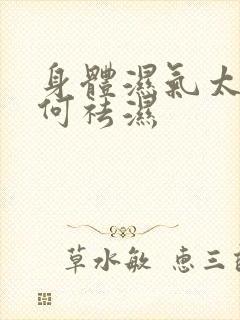 身體濕氣太
何祛濕
草水敏 惠三百